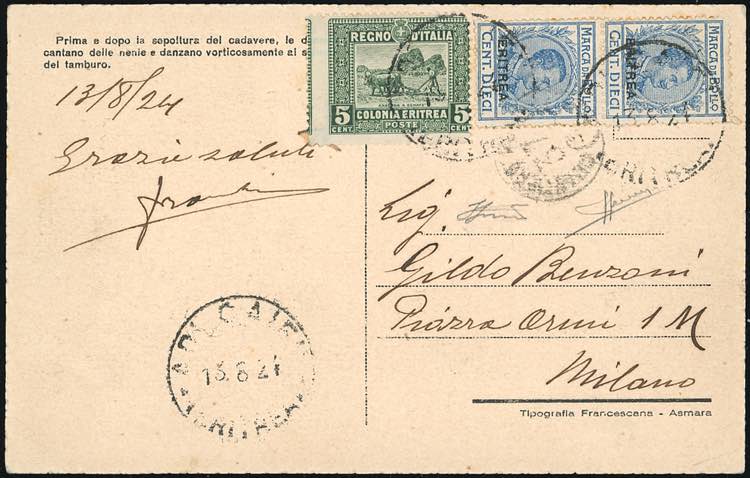 Prima e dopo la sepoltura del cadavere, le d
cantano delle nenie e danzano vorticosamente al s
del tamburo.
13/8/24
Grazie saluti
REGNO D'ITALIA
5 5
CENT. CENT.
COLONIA ERITREA
POSTE
MARCA DA BOLLO
ERITREA
CENT. DIECI
MARCA DA BOLLO
ERITREA
CENT. DIECI
ERITREA
Sig.
Gildo Benzoni
Piazza 1 M
Milano
13.8.24
ERITREA
Tipografia Francescana - Asmara